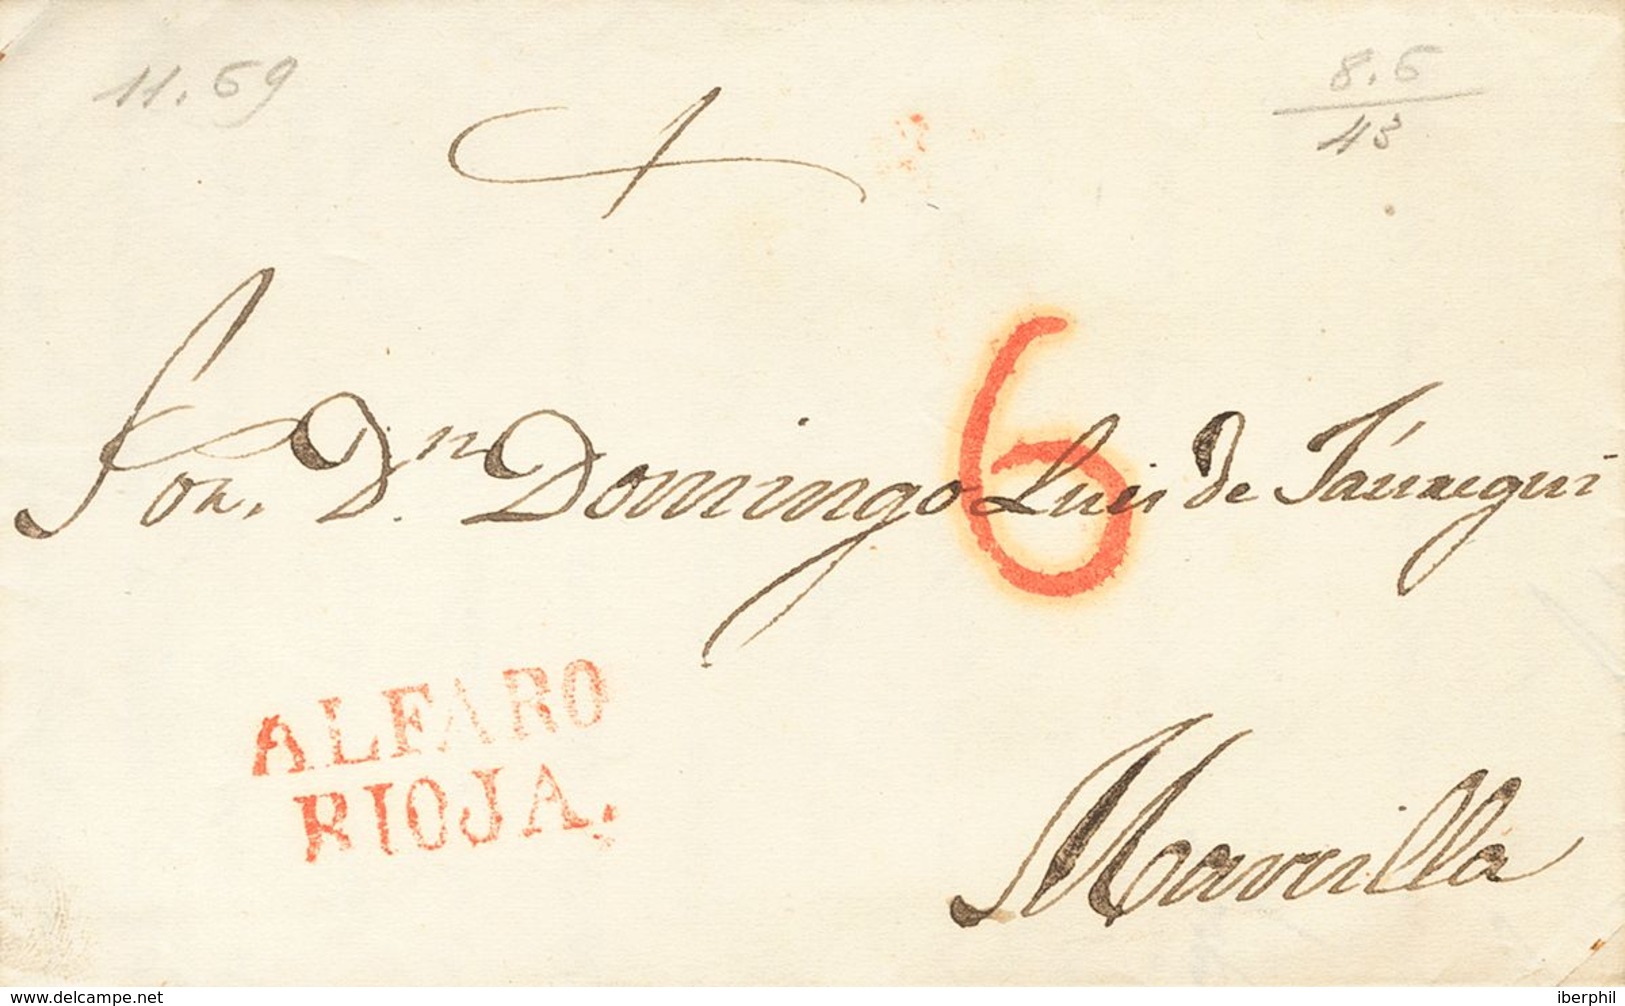 11.59
8.5
43
Sor. Dn. Domingo Luis de Jáuregui
6
ALFARO
RIOJA.
Marcilla
www.delcampe.net
iberphil